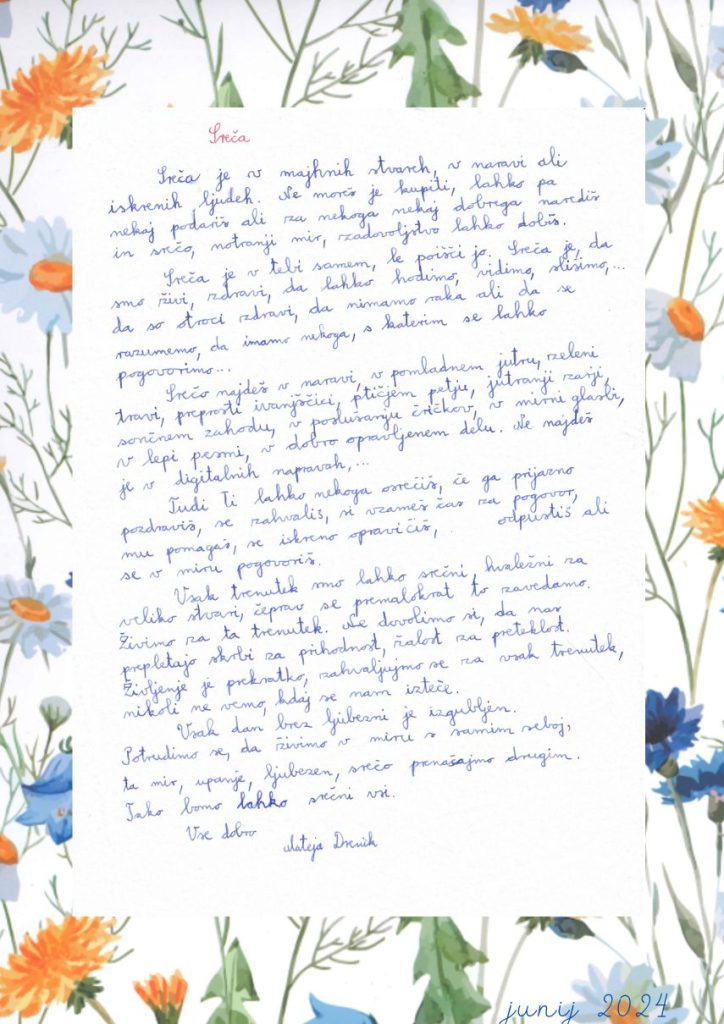 Sreča
Sreča je v majhnih stvareh, v naravi ali
iskrenih ljudeh. Ne moreš je kupiti, lahko pa
nekaj podariš ali za nekoga nekaj dobrega narediš
in srečo, notranji mir, zadovoljstvo lahko dobiš.
Sreča je v tebi samem, le poišči jo. Sreča je, da
smo živi, zdravi, da lahko hodimo, vidimo, slišimo,...
da so otroci zdravi, da nimamo raka ali da se
razumemo, da imamo nekoga, s katerim se lahko
pogovorimo...
Srečo najdeš v naravi, v pomladnem jutru, zeleni
travi, preprosti ivanjščici, ptičjem petju, jutranji zarji,
sončnem zahodu, v poslušanju čričkov, v mirni glasbi,
v lepi pesmi, v dobro opravljenem delu. Ne najdeš
je v digitalnih napravah,...
Tudi Ti lahko nekoga osrečiš, če ga prijazno
pozdraviš, se zahvališ, si vzameš čas za pogovor,
mu pomagaš, se iskreno opravičiš, odpustiš ali
se v miru pogovoriš.
Vsak trenutek smo lahko srečni, hvaležni za
veliko stvari, čeprav se premalokrat to zavedamo.
Živimo za ta trenutek. Ne dovolimo si, da nas
prepletajo skrbi za prihodnost, žalost za preteklost.
Življenje je prekratko, zahvaljujmo se za vsak trenutek,
nikoli ne vemo, kdaj se nam izteče.
Vsak dan brez ljubezni je izgubljen.
Potrudimo se, da živimo v miru s samim seboj,
ta mir, upanje, ljubezen, srečo prenašajmo drugim.
Tako bomo lahko srečni vsi.
Vse dobro
Mateja Drenik
junij 2024